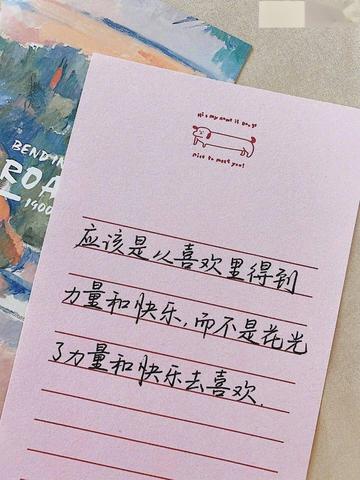 Hi my name is
nice to meet you!
BENDIN
ROA
1900
应该是从喜欢里得到
力量和快乐,而不是花光
了力量和快乐去喜欢.